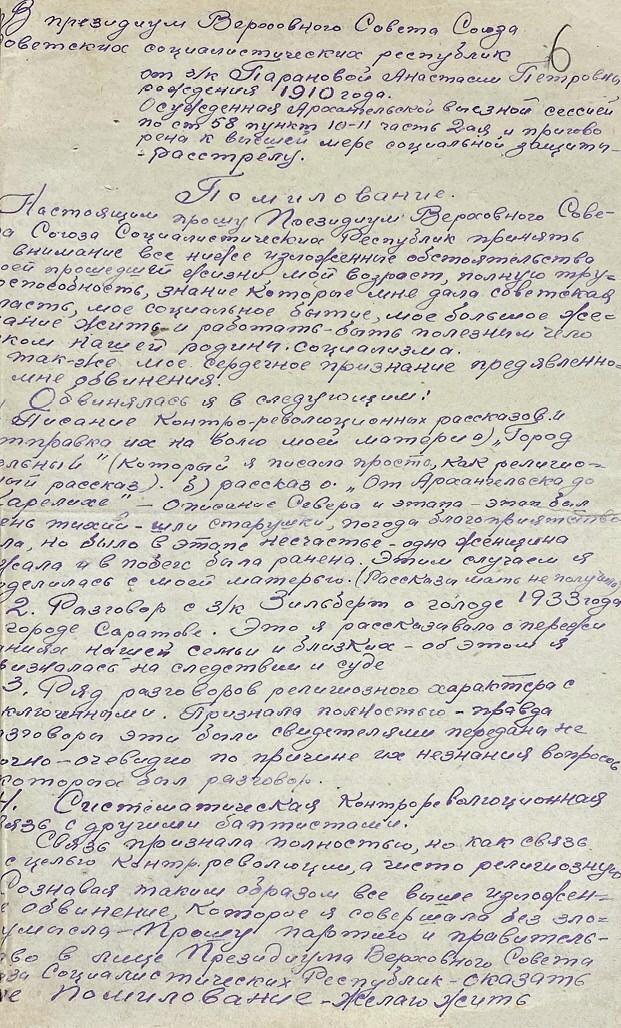 В президиум Верховного Совета Союза
Советских социалистических республик
6
от з/к Парановой Анастасии Петровны
рождения 1910 года.
Осужденная Архангельской выездной сессией
по ст 58 пункт 10-11 часть 2ая и пригово
рена к высшей мере социальной защиты-
-расстрелу.
Помилование.
Настоящим прошу Президиум Верховного Сове-
а Союза Социалистических Республик принять
внимание все ниже изложенные обстоятельства
оей прошедшей жизни, мой возраст, полную тру-
оспособность, знание которые мне дала советская
ласть, мое социальное бытие, мое большое же=
ание жить и работать-быть полезным чело
ком нашей родины.социализма.
так-же мое сердечное признание предявленно=
мне обвинения.
Обвинялась я в следующим:
Писание Контр-революционных рассказов.и
тправка их на волю моей матери а) „Город
ельный" (который я писала просто, как религио=
ный рассказ). б) рассказ о. „От Архангельска до
Карелихе" - описание Севера и этапа - этап был
ень тихий - шли старушки, погода благоприятство
ла, но было в этапе несчастье - одна женщина
жала и в побеге была ранена. Этим случаем я
оделилась с моей матерью. (Рассказы мать не получила)
2. Разговор с з/к Зильберт о голоде 1933 года
городе Саратове. Это я рассказывала о пережи
аниях нашей семьи и близких - об этом я
ризналась на следствии и суде
3. Ряд разговоров религиозного характера с
ключенными. Признала полностью - правда
азговоры эти были свидетелями переданы не
очно - очевидно по причине их незнания вопросов
которых был разговор.
4. Систематическая Контрреволюционная
вязь с другими баптистами.
Связь признала полностью, но как связь
с целью контр.революции, а чисто религиозную
Сознавая таким образом все выше изложен=
е обвинение, которое я совершала без зло=
умысла - Прошу партию и правитель-
во в лице Президиума Верховного Совета
юза Социалистических Республик - оказать
не Помилование - желаю жить